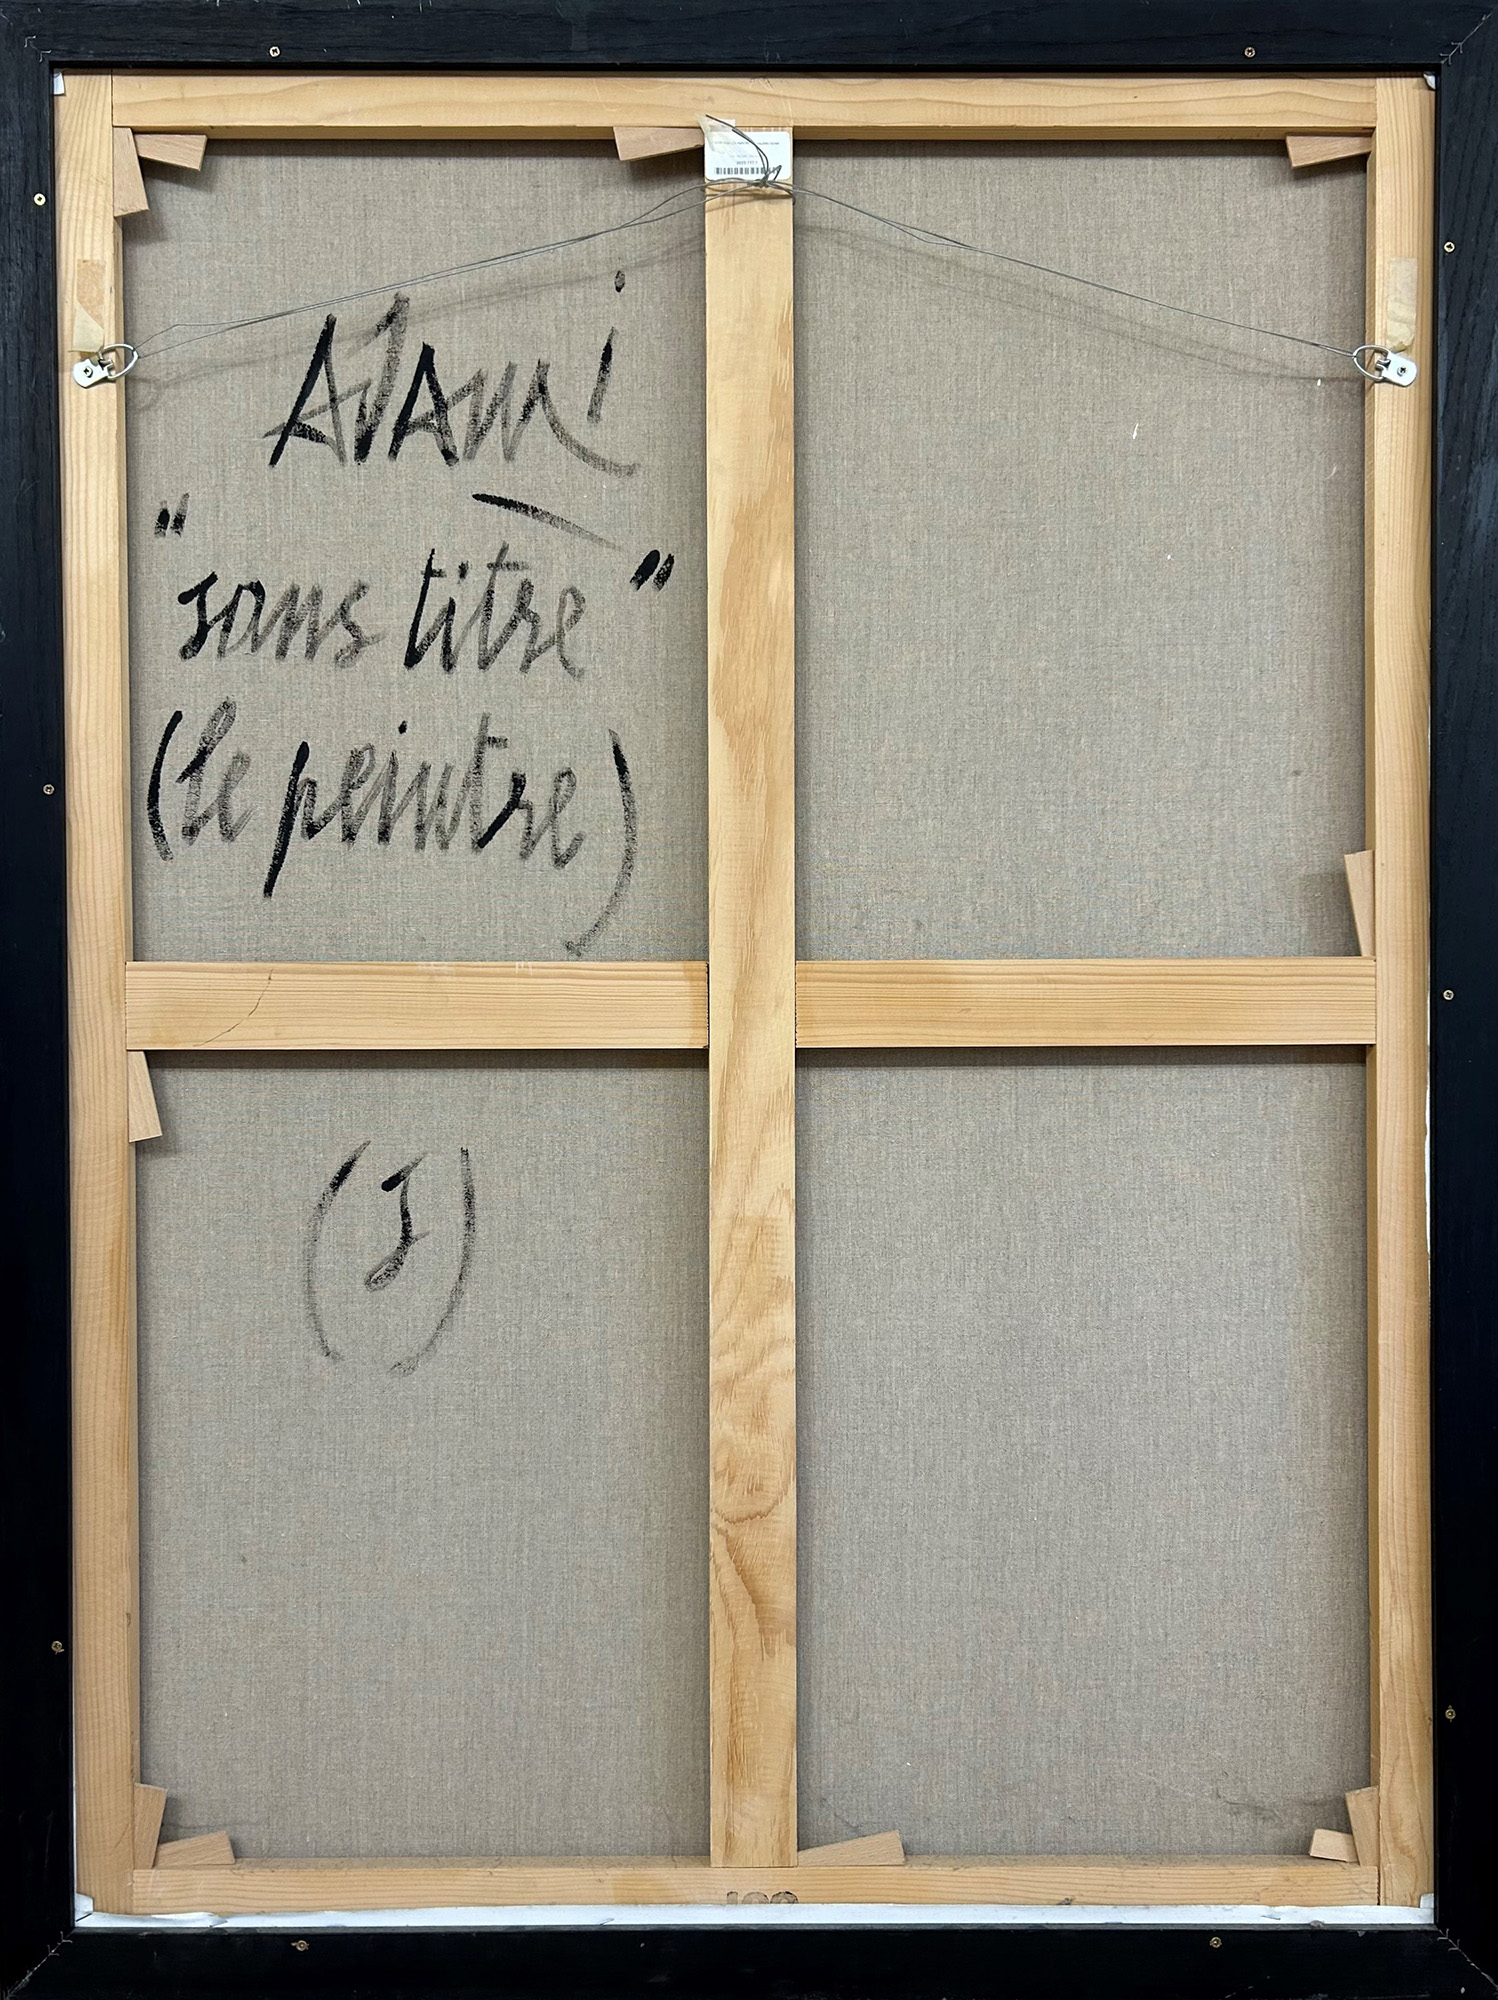 Adami
"sans titre"
(le peintre)
(J)